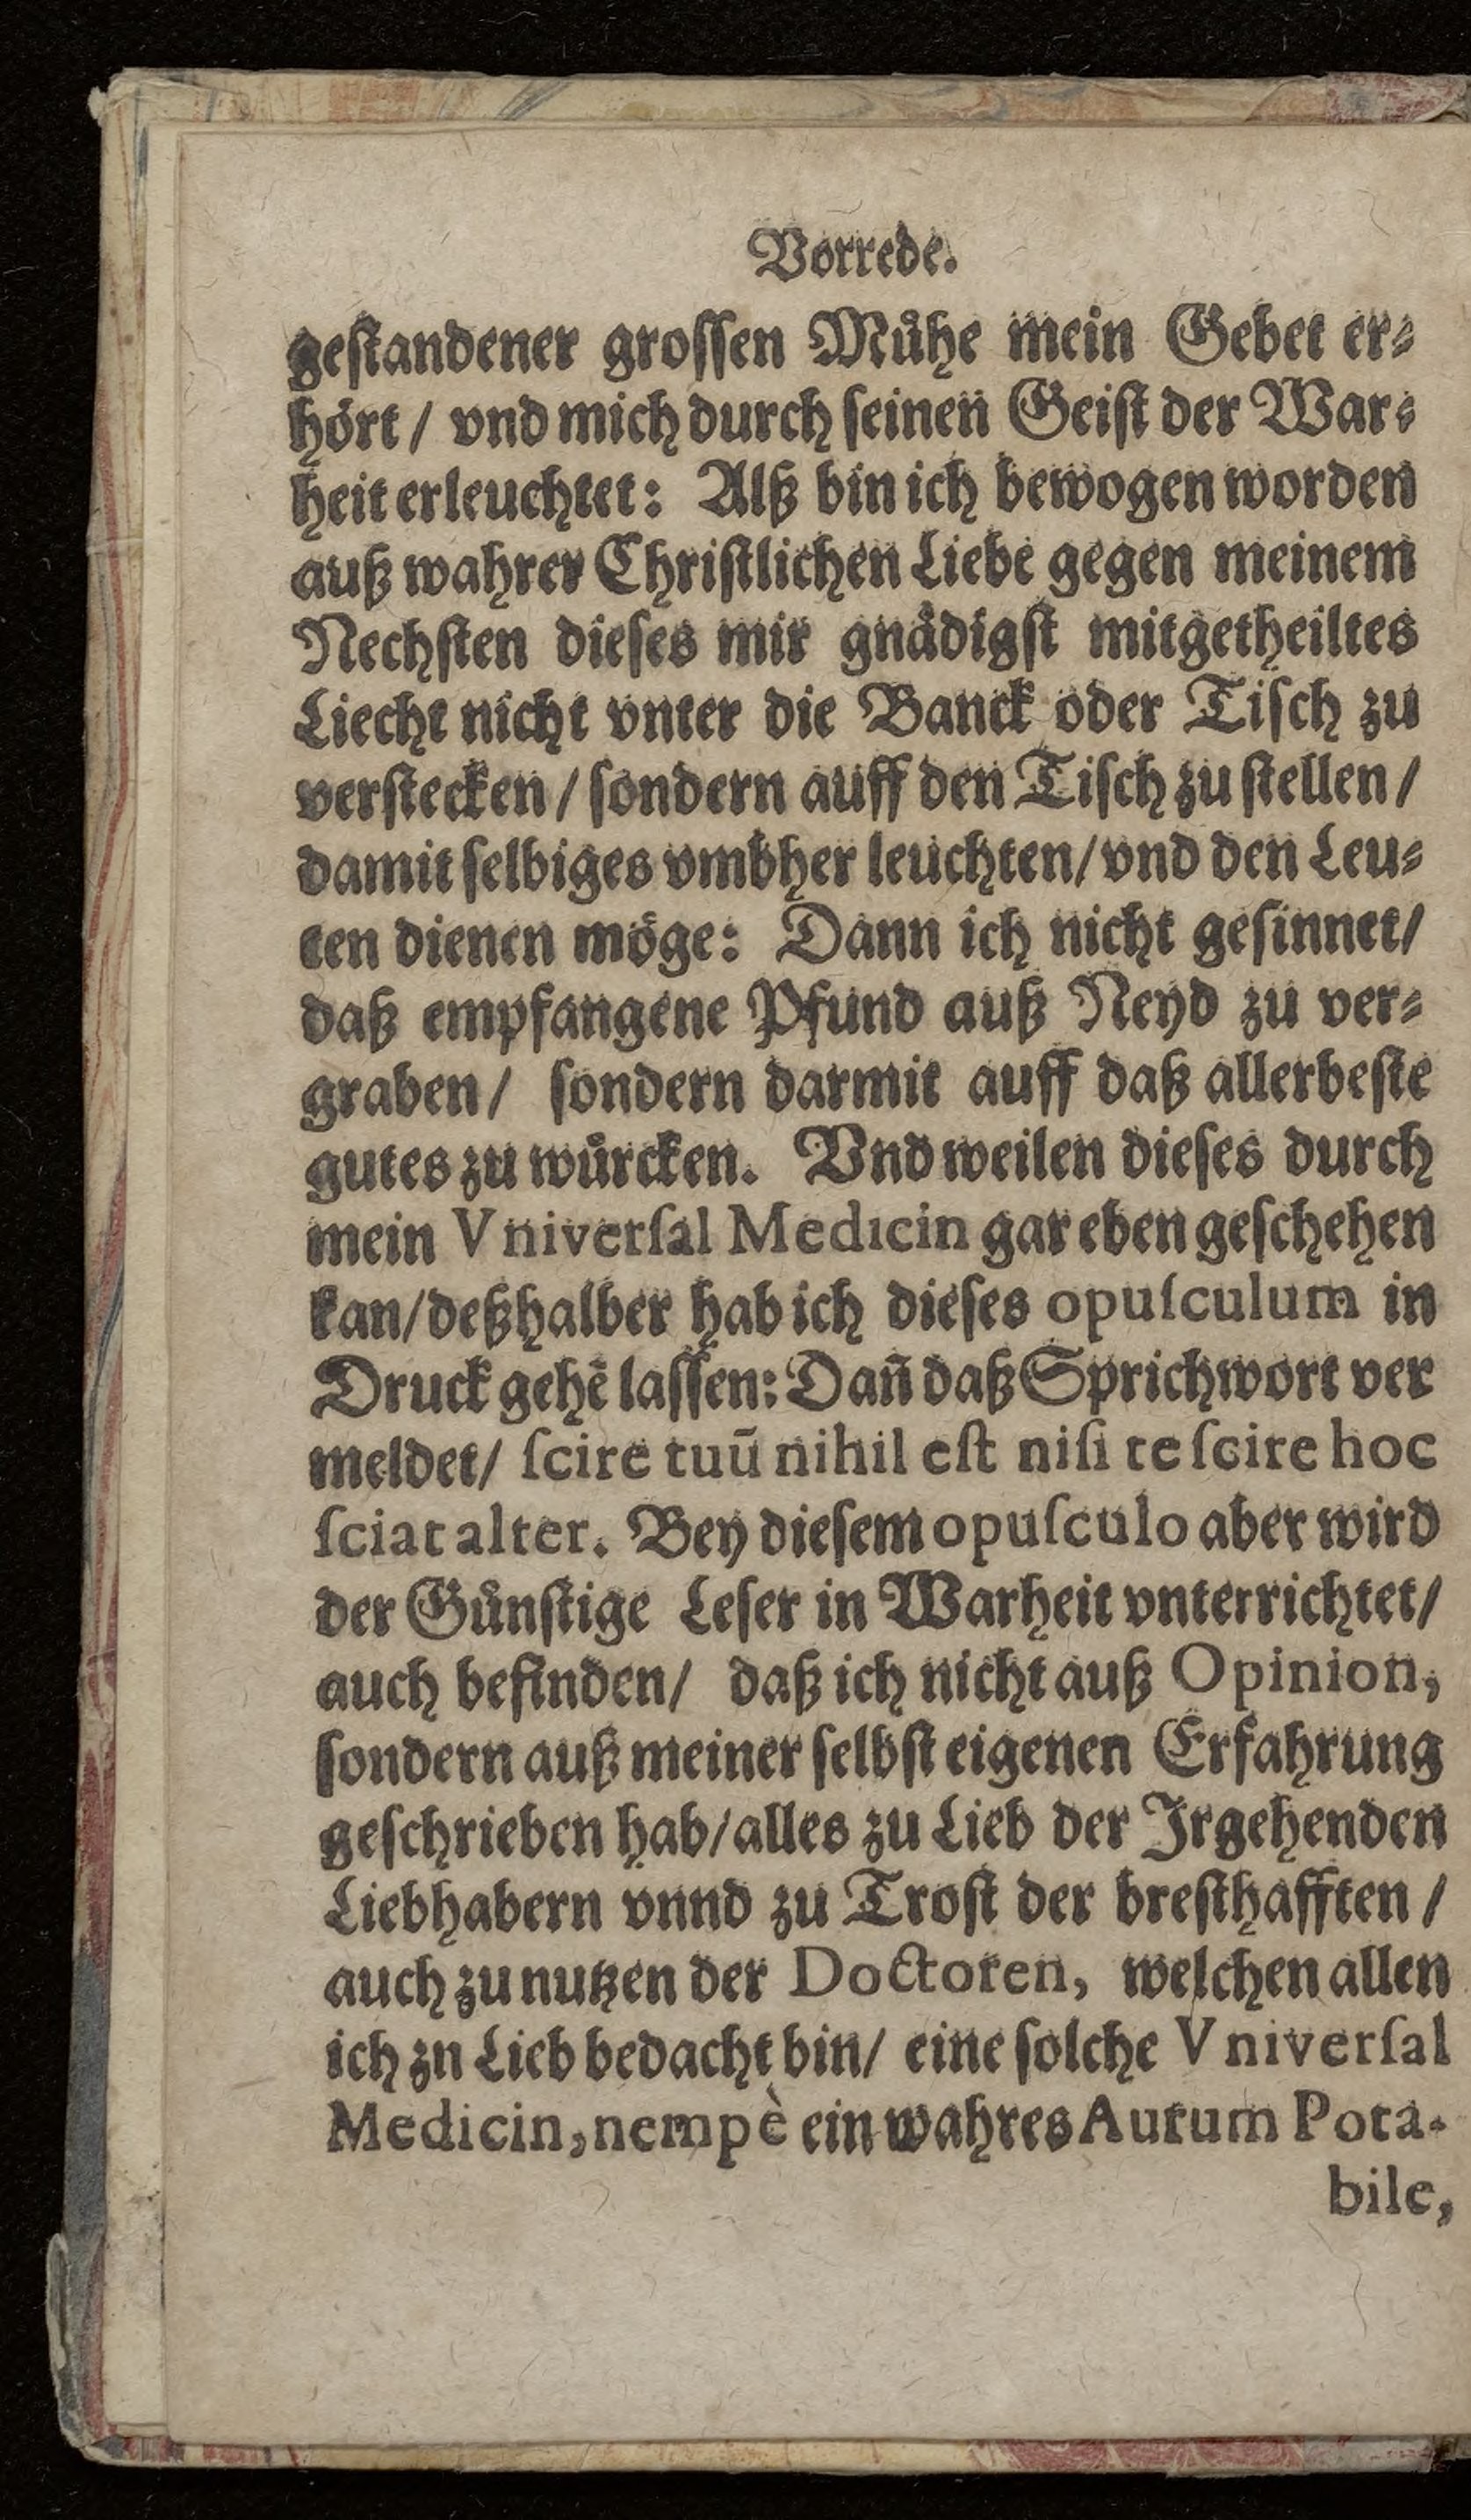 Vorrede.
geſtandener groſſen Muͤhe mein Gebet er⸗
hoͤrt / vnd mich durch ſeinen Geiſt der War⸗
heit erleuchtet: Alß bin ich bewogen worden
auß wahrer Chriſtlichen Liebe gegen meinem
Nechſten dieſes mir gnaͤdigſt mitgetheiltes
Liecht nicht vnter die Banck oder Tiſch zu
verſtecken / ſondern auff den Tiſch zu ſtellen /
damit ſelbiges vmbher leuchten / vnd den Leu⸗
ten dienen moͤge: Dann ich nicht geſinnet /
daß empfangene Pfund auß Neyd zu ver⸗
graben / ſondern darmit auff daß allerbeſte
gutes zu wuͤrcken. Vnd weilen dieſes durch
mein Vniverſal Medicin gar eben geſchehen
kan / deßhalber hab ich dieſes opuſculum in
Druck gehē laſſen: Dañ daß Sprichwort ver
meldet / ſcire tuū nihil eſt niſi te ſcire hoc
ſciat alter. Bey dieſem opuſculo aber wird
der Guͤnſtige Leſer in Warheit vnterrichtet /
auch befinden / daß ich nicht auß Opinion,
ſondern auß meiner ſelbſt eigenen Erfahrung
geſchrieben hab / alles zu Lieb der Jrgehenden
Liebhabern vnnd zu Troſt der breſthafften /
auch zu nutzen der Doctoren, welchen allen
ich zn Lieb bedacht bin / eine ſolche Vniverſal
Medicin, nempè ein wahres Aurum Pota-
bile,